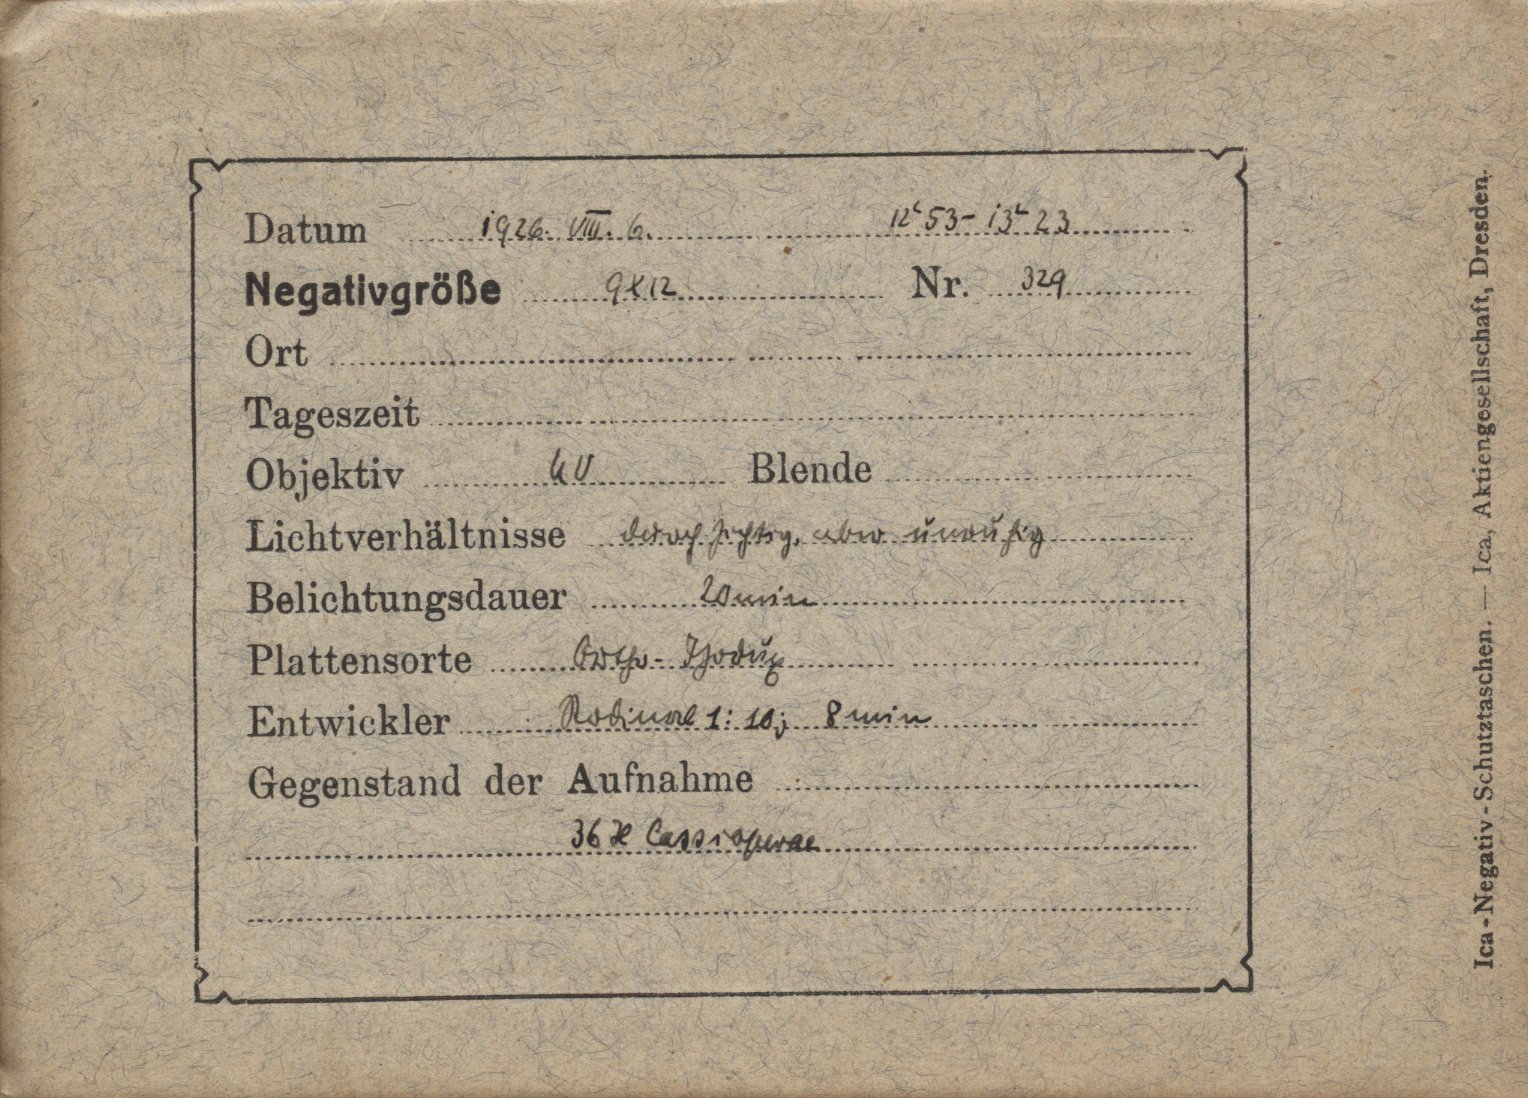 Datum 1926. VIII. 6. 12ʰ53 - 13ʰ23
Negativgröße 9x12 Nr. 329
Ort
Tageszeit
Objektiv UV Blende
Lichtverhältnisse durchsichtig, aber unruhig
Belichtungsdauer 20 min
Plattensorte Ortho-
Entwickler Rodinal 1:10; 8 min
Gegenstand der Aufnahme
36 H Cassiopeiae
Ica-Negativ-Schutztaschen. — Ica, Aktiengesellschaft, Dresden.